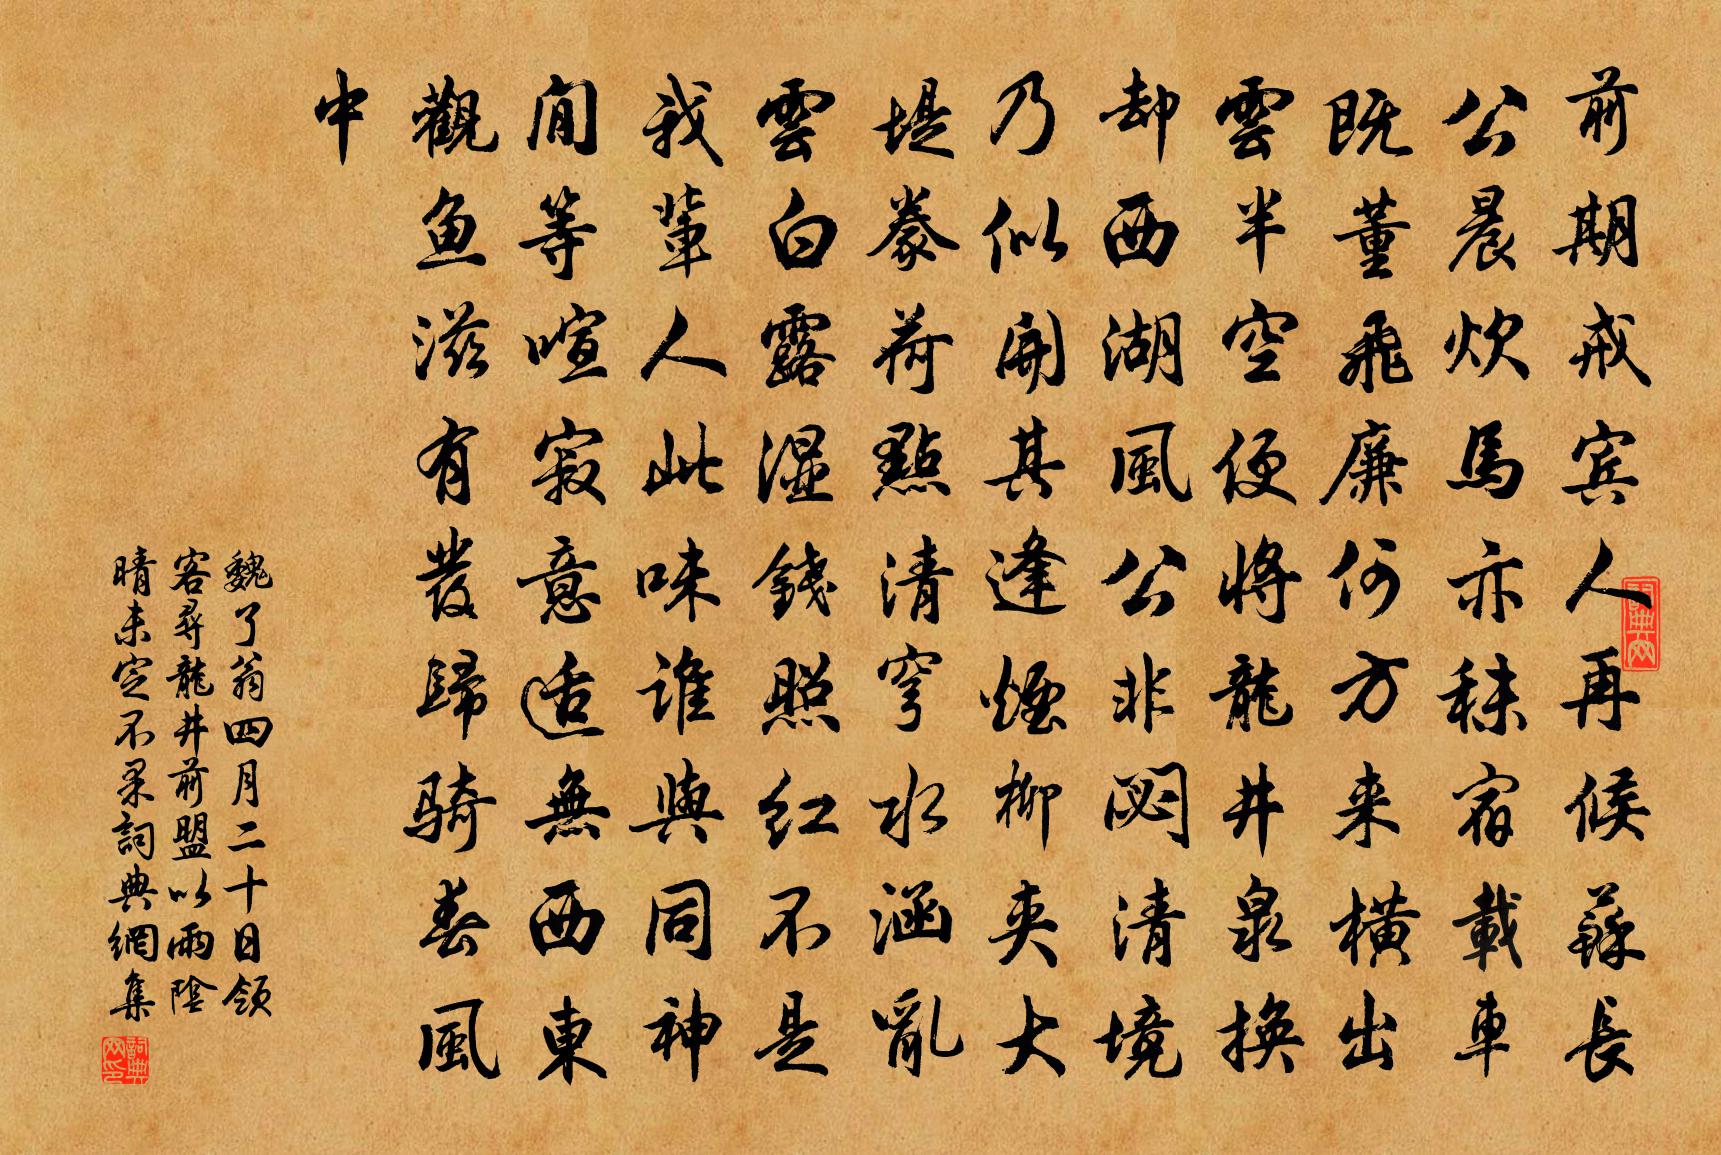 前期戒宾人再候蘇長
公晨炊馬亦秣宿載車
既董飛廉何方来橫出
雲半空便將龍井泉換
却西湖風公非閟清境
乃似開其逢煙柳夾大
堤豢荷點清穹水涵亂
雲白露湿錢照紅不是
我輩人此味谁與同神
閒等喧寂意适無西東
觀魚滋有發歸骑春風
中
魏了翁四月二十日領
客尋龍井前盟以雨陰
晴未定不果詞典網集
詞典网
詞典网印